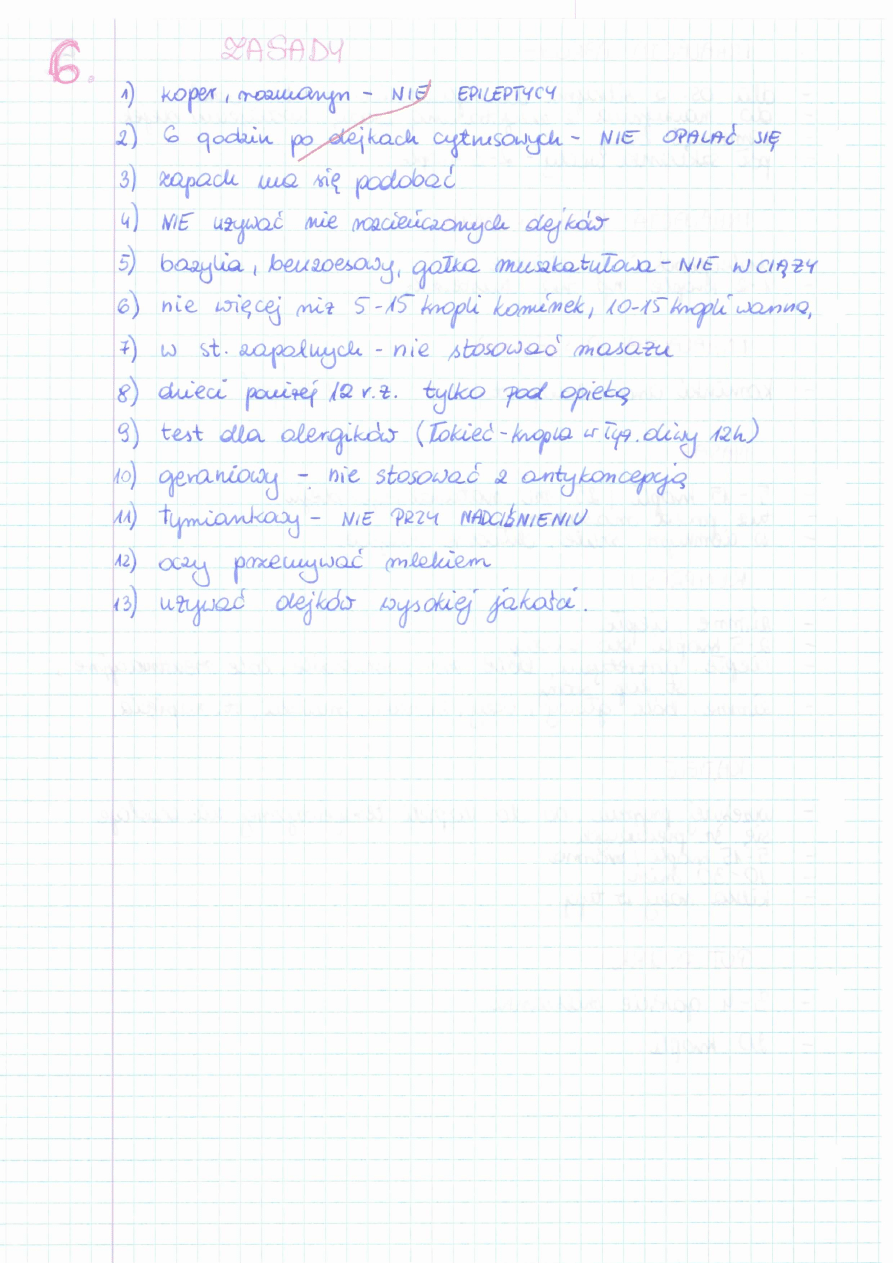 6. ZASADY
1) koper, rozmaryn - NIE EPILEPTYCY
2) 6 godzin po olejkach cytrusowych - NIE OPALAĆ SIĘ
3) zapach ma się podobać
4) NIE używać nie rozcieńczonych olejków
5) bazylia, benzoesowy, gałka muszkatułowa - NIE W CIĄŻY
6) nie więcej niż 5-15 kropli kominek, 10-15 kropli wanna,
7) w st. zapalnych - nie stosować masażu
8) dzieci poniżej 12 r.ż. tylko pod opieką
9) test dla alergików (łokieć - kropla w łyż. oliwy 12h)
10) geraniowy - nie stosować z antykoncepcją
11) tymiankowy - NIE PRZY NADCIŚNIENIU
12) oczy przemywać mlekiem
13) używać olejków wysokiej jakości.